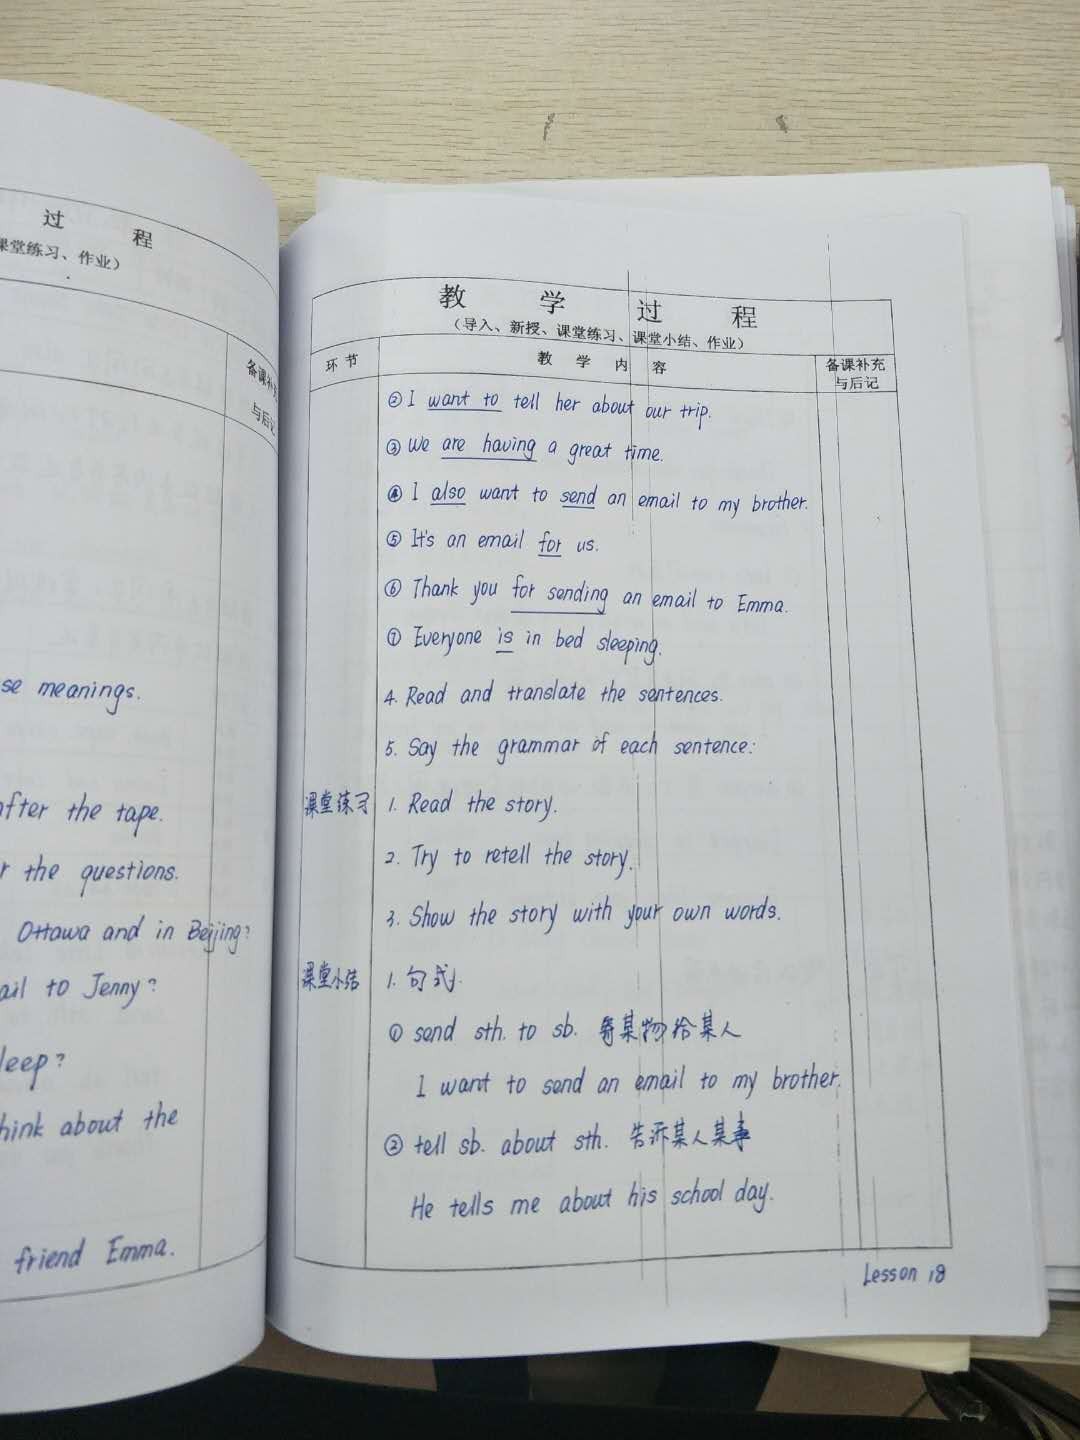 过 程
课堂练习、作业）
备课补充
与后记
se meanings.
after the tape.
the questions.
Ottawa and in Beijing?
ail to Jenny?
leep?
hink about the
friend Emma.
教 学 过 程
（导入、新授、课堂练习、课堂小结、作业）
环 节 教 学 内 容 备课补充
与后记
② I want to tell her about our trip.
③ We are having a great time.
④ I also want to send an email to my brother.
⑤ It's an email for us.
⑥ Thank you for sending an email to Emma.
⑦ Everyone is in bed sleeping.
4. Read and translate the sentences.
5. Say the grammar of each sentence:
课堂练习 1. Read the story.
2. Try to retell the story.
3. Show the story with your own words.
课堂小结 1. 句式.
① send sth. to sb. 寄某物给某人
I want to send an email to my brother.
② tell sb. about sth. 告诉某人某事
He tells me about his school day.
Lesson 18